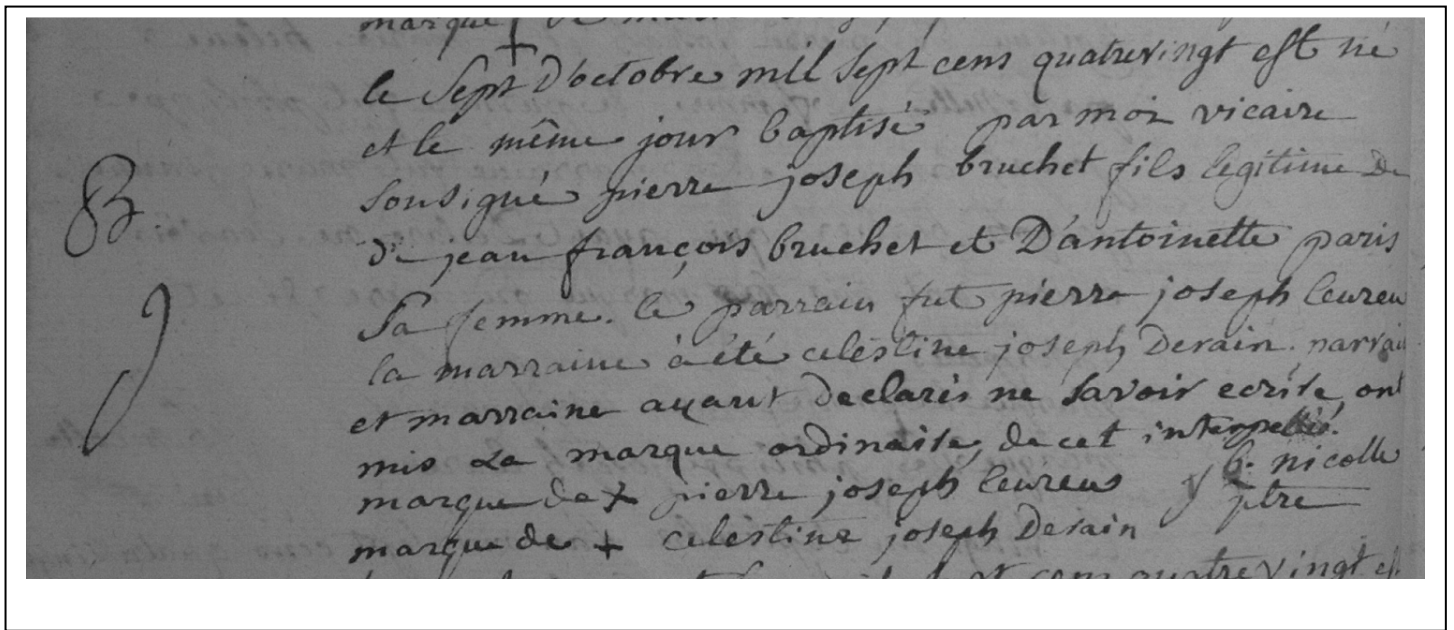 marque de
le Sept D'octobre mil Sept cens quatrevingt est né
et le même jour baptisé par moi vicaire
Sousigné pierre joseph bruchet fils legitime De
de jean françois bruchet et D'antoinette paris
Sa femme. le parrain fut pierre joseph leureu
la marraine à été celestine joseph Derain. parrain
et marraine ayant declarés ne Savoir ecrire ont
mis La marque ordinaire, de cet interpellés.
marque de + pierre joseph leureus
marque de + celestine joseph Derain
nicolle
ptre
cens quatrevingt
B